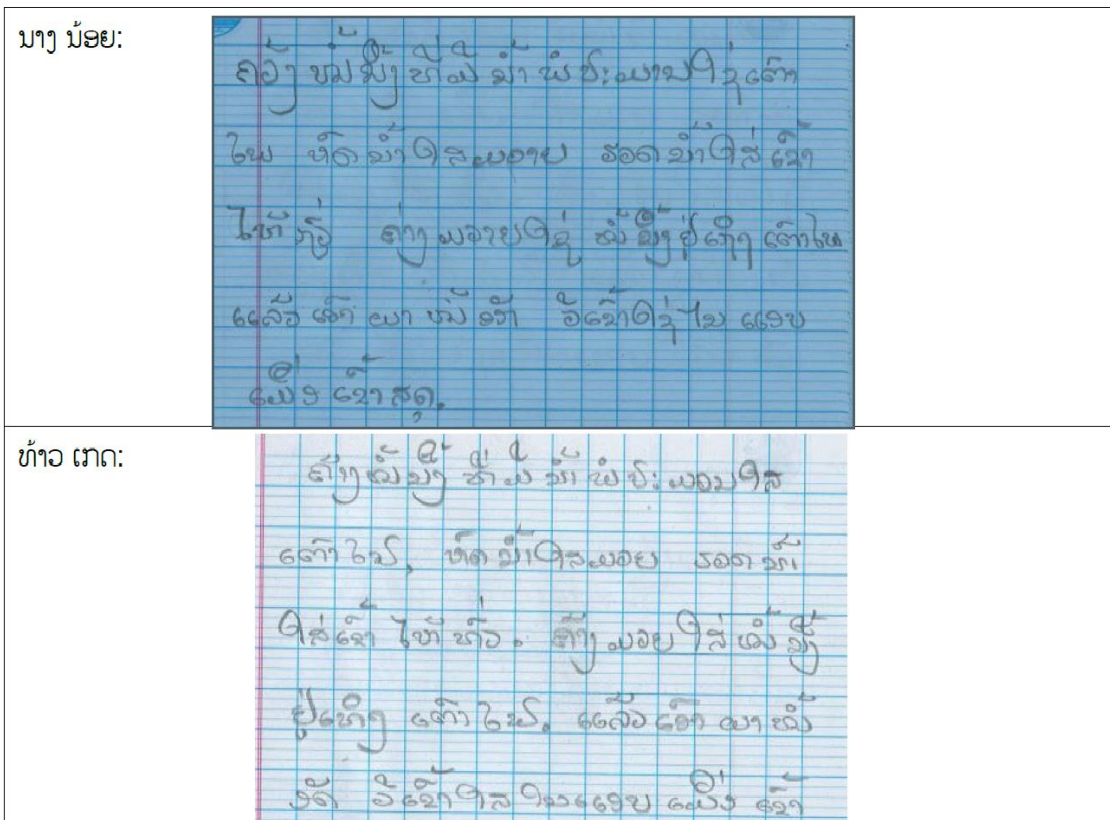 ນາງ ນ້ອຍ:
ຄວ້າງ ໝໍ້ນຶ້ງ ທີ່ມີ ນ້ຳ ພໍປະມານ ໃຊ່ເຕົາ
ໄຟ ຫົດນ້ຳໃສມວາຍ ຮອດນ້ຳໃສ່ເຂົ້າ
ໄຫ້ ຄ່າງມວາຍໃຊ່ ໝໍ້ນຶ້ງຢູ່ເທິງ ເຕົາໄຟ
ແລ້ວ ເອົາ ຝາ ໝໍ້ ອັດ ວີເຂົ້າໃຊ່ໃນ ແອບ
ເພື່ອ ເຂົ້າສຸດ.
ທ້າວ ເກດ:
ຄ້າງໝໍ້ນຶ້ງ ທີ່ ມີ ນ້ຳ ພໍປະມານໃສ
ເຕົາໄຟ, ຫົດນ້ຳໃສມວຍ ຮອດນ້ຳ
ໃສ່ເຂົ້າ ໃຫ້ ທົ່ວ. ຄ້າງມວຍໃສ່ ໝໍ້ນຶ້ງ
ຢູ່ເທິງ ເຕົາໄຟ. ແລ້ວເອົາ ຝາໝໍ້
ອັດ ວີເຂົ້າໃສໃນແອບ ເພື່ອ ເຂົ້າ